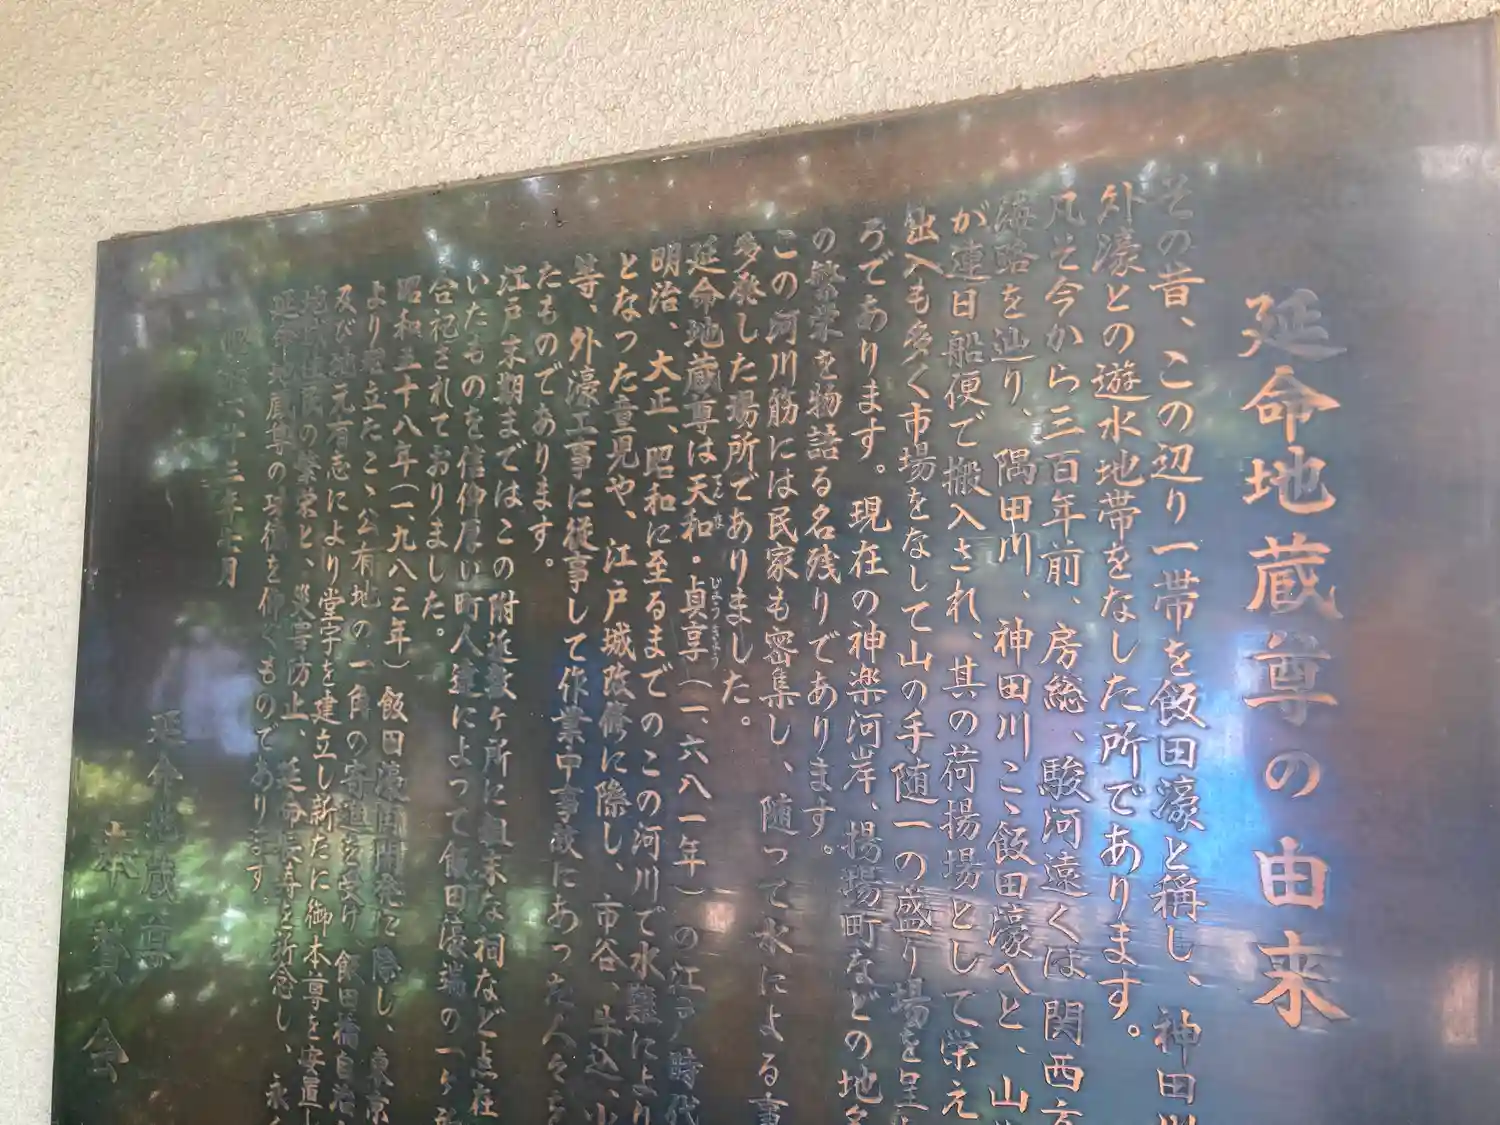 延命地蔵尊の由来
その昔、この辺り一帯を飯田濠と稱し、神田川
外濠との遊水地帯をなした所であります。
凡そ今から三百年前、房総、駿河遠くは関西方
海路を辿り、隅田川、神田川こゝ飯田濠へと、山
が連日船便で搬入され、其の荷揚場として栄え
出入も多く市場をなして山の手随一の盛り場を呈
ろであります。現在の神楽河岸、揚場町などの地名
の繁栄を物語る名残りであります。
この河川筋には民家も密集し、随って水による事
多発した場所でありました。
延命地蔵尊は天和・貞享(一、六八一年)の江戸時代
明治、大正、昭和に至るまでのこの河川で水難により
となった童児や、江戸城改修に際し、市谷、牛込、小
等、外濠工事に従事して作業中事故にあった人々を
たものであります。
江戸末期まではこの附近数ヶ所に粗末な祠など点在
いたものを信仰厚い町人達によって飯田濠端の一ヶ所
合祀されておりました。
昭和五十八年(一、九八三年)飯田濠再開発に際し、東京
より申立たこゝ公有地の一角の寄進を受け、飯田橋自治
及び地元有志により堂宇を建立し新たに御本尊を安置
地域住民の繁栄と、災害防止、延命長寿を祈念し、永く
延命地蔵尊の功徳を仰ぐものであります。
昭和六十三年 月
延命地蔵尊
奉賛会